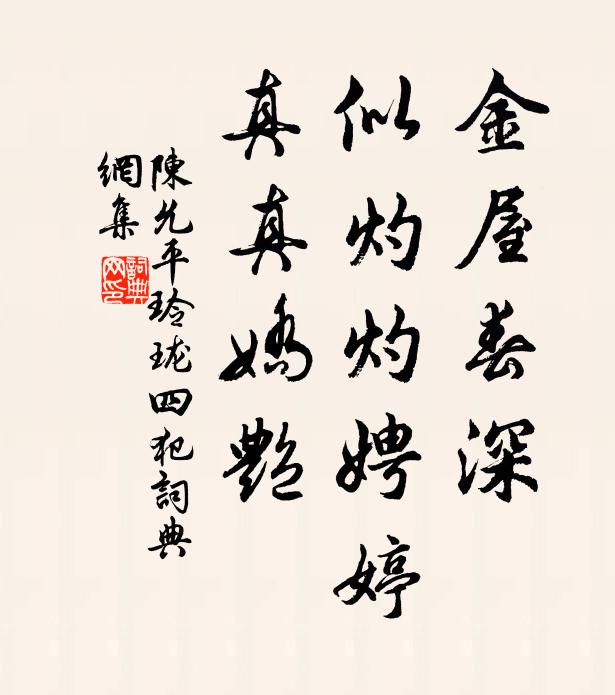 金屋春深
似灼灼娉婷
真真嬌艷
陳允平玲瓏四犯詞典
網集
詞典網印